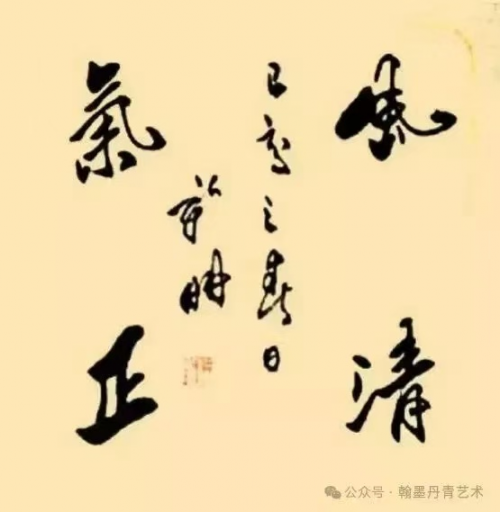 風清
己亥之春日
氣正
公众号·翰墨丹青艺术